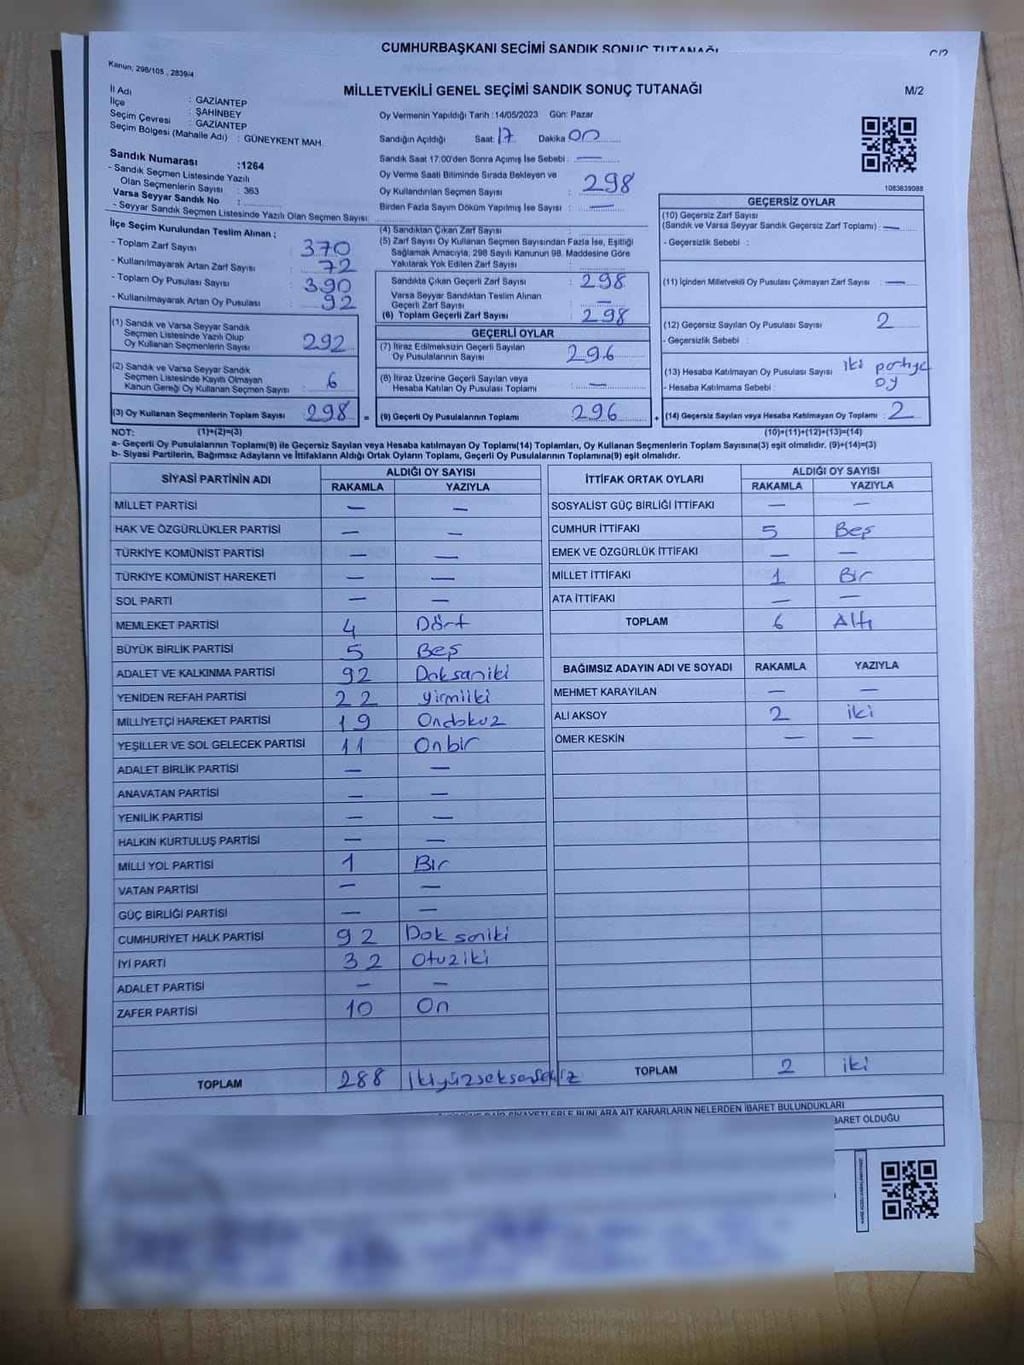 CUMHURBAŞKANI SEÇİMİ SANDIK SONUÇ TUTANAĞI
Kanun, 298/105 , 2839/4
MİLLETVEKİLİ GENEL SEÇİMİ SANDIK SONUÇ TUTANAĞI
M/2
İl Adı : GAZİANTEP
İlçe : ŞAHİNBEY
Seçim Çevresi : GAZİANTEP
Seçim Bölgesi (Mahalle Adı) : GÜNEYKENT MAH.
Sandık Numarası :1264
- Sandık Seçmen Listesinde Yazılı
Olan Seçmenlerin Sayısı : 363
Varsa Seyyar Sandık No :
- Seyyar Sandık Seçmen Listesinde Yazılı Olan Seçmen Sayısı :
Oy Vermenin Yapıldığı Tarih :14/05/2023 Gün: Pazar
Sandığın Açıldığı Saat: 17 Dakika: 00
Sandık Saat 17.00'den Sonra Açımış İse Sebebi : —
Oy Verme Saati Bitiminde Sırada Bekleyen ve
Oy Kullandırılan Seçmen Sayısı : 298
Birden Fazla Sayım Döküm Yapılmış İse Sayısı : —
1083639088
İlçe Seçim Kurulundan Teslim Alınan ;
- Toplam Zarf Sayısı : 370
- Kullanılmayarak Artan Zarf Sayısı : 72
- Toplam Oy Pusulası Sayısı : 390
- Kullanılmayarak Artan Oy Pusulası : 92
(1) Sandık ve Varsa Seyyar Sandık
Seçmen Listesinde Yazılı Olup
Oy Kullanan Seçmenlerin Sayısı : 292
(2) Sandık ve Varsa Seyyar Sandık
Seçmen Listesinde Kayıtlı Olmayan
Kanun Gereği Oy Kullanan Seçmen Sayısı : 6
(3) Oy Kullanan Seçmenlerin Toplam Sayısı : 298 =
(4) Sandıktan Çıkan Zarf Sayısı :
(5) Zarf Sayısı Oy Kullanan Seçmen Sayısından Fazla İse, Eşitliği
Sağlamak Amacıyla, 298 Sayılı Kanunun 98. Maddesine Göre
Yakılarak Yok Edilen Zarf Sayısı :
Sandıkta Çıkan Geçerli Zarf Sayısı : 298
Varsa Seyyar Sandıktan Teslim Alınan
Geçerli Zarf Sayısı : —
(6) Toplam Geçerli Zarf Sayısı : 298
GEÇERLİ OYLAR
(7) İtiraz Edilmeksizin Geçerli Sayılan
Oy Pusulalarının Sayısı : 296
(8) İtiraz Üzerine Geçerli Sayılan veya
Hesaba Katılan Oy Pusulası Toplamı : —
(9) Geçerli Oy Pusulalarının Toplamı : 296 +
GEÇERSİZ OYLAR
(10) Geçersiz Zarf Sayısı
(Sandık ve Varsa Seyyar Sandık Geçersiz Zarf Toplamı) : —
- Geçersizlik Sebebi :
(11) İçinden Milletvekili Oy Pusulası Çıkmayan Zarf Sayısı : —
(12) Geçersiz Sayılan Oy Pusulası Sayısı : 2
- Geçersizlik Sebebi :
(13) Hesaba Katılmayan Oy Pusulası Sayısı : iki partiye
- Hesaba Katılmama Sebebi : oy
(14) Geçersiz Sayılan veya Hesaba Katılmayan Oy Toplamı : 2
NOT: (1)+(2)=(3) (10)+(11)+(12)+(13)=(14)
a- Geçerli Oy Pusulalarının Toplamı(9) ile Geçersiz Sayılan veya Hesaba katılmayan Oy Toplamı(14) Toplamları, Oy Kullanan Seçmenlerin Toplam Sayısına(3) eşit olmalıdır. (9)+(14)=(3)
b- Siyasi Partilerin, Bağımsız Adayların ve İttifakların Aldığı Ortak Oyların Toplamı, Geçerli Oy Pusulalarının Toplamına(9) eşit olmalıdır.
SİYASİ PARTİNİN ADI ALDIĞI OY SAYISI
RAKAMLA YAZIYLA
MİLLET PARTİSİ — —
HAK VE ÖZGÜRLÜKLER PARTİSİ — —
TÜRKİYE KOMÜNİST PARTİSİ — —
TÜRKİYE KOMÜNİST HAREKETİ — —
SOL PARTİ — —
MEMLEKET PARTİSİ 4 Dört
BÜYÜK BİRLİK PARTİSİ 5 Beş
ADALET VE KALKINMA PARTİSİ 92 Doksaniki
YENİDEN REFAH PARTİSİ 22 yirmiiki
MİLLİYETÇİ HAREKET PARTİSİ 19 Ondokuz
YEŞİLLER VE SOL GELECEK PARTİSİ 11 Onbir
ADALET BİRLİK PARTİSİ — —
ANAVATAN PARTİSİ — —
YENİLİK PARTİSİ — —
HALKIN KURTULUŞ PARTİSİ — —
MİLLİ YOL PARTİSİ 1 Bir
VATAN PARTİSİ — —
GÜÇ BİRLİĞİ PARTİSİ — —
CUMHURİYET HALK PARTİSİ 92 Doksaniki
İYİ PARTİ 32 Otuziki
ADALET PARTİSİ — —
ZAFER PARTİSİ 10 On
TOPLAM 288 İkiyüzseksensekiz
İTTİFAK ORTAK OYLARI ALDIĞI OY SAYISI
RAKAMLA YAZIYLA
SOSYALİST GÜÇ BİRLİĞİ İTTİFAKI — —
CUMHUR İTTİFAKI 5 Beş
EMEK VE ÖZGÜRLÜK İTTİFAKI — —
MİLLET İTTİFAKI 1 Bir
ATA İTTİFAKI — —
TOPLAM 6 Altı
BAĞIMSIZ ADAYIN ADI VE SOYADI RAKAMLA YAZIYLA
MEHMET KARAYILAN — —
ALİ AKSOY 2 iki
ÖMER KESKİN — —
TOPLAM 2 iki
BUNLARA AİT KARARLARIN NELERDEN İBARET BULUNDUKLARI
BARET OLDUĞU